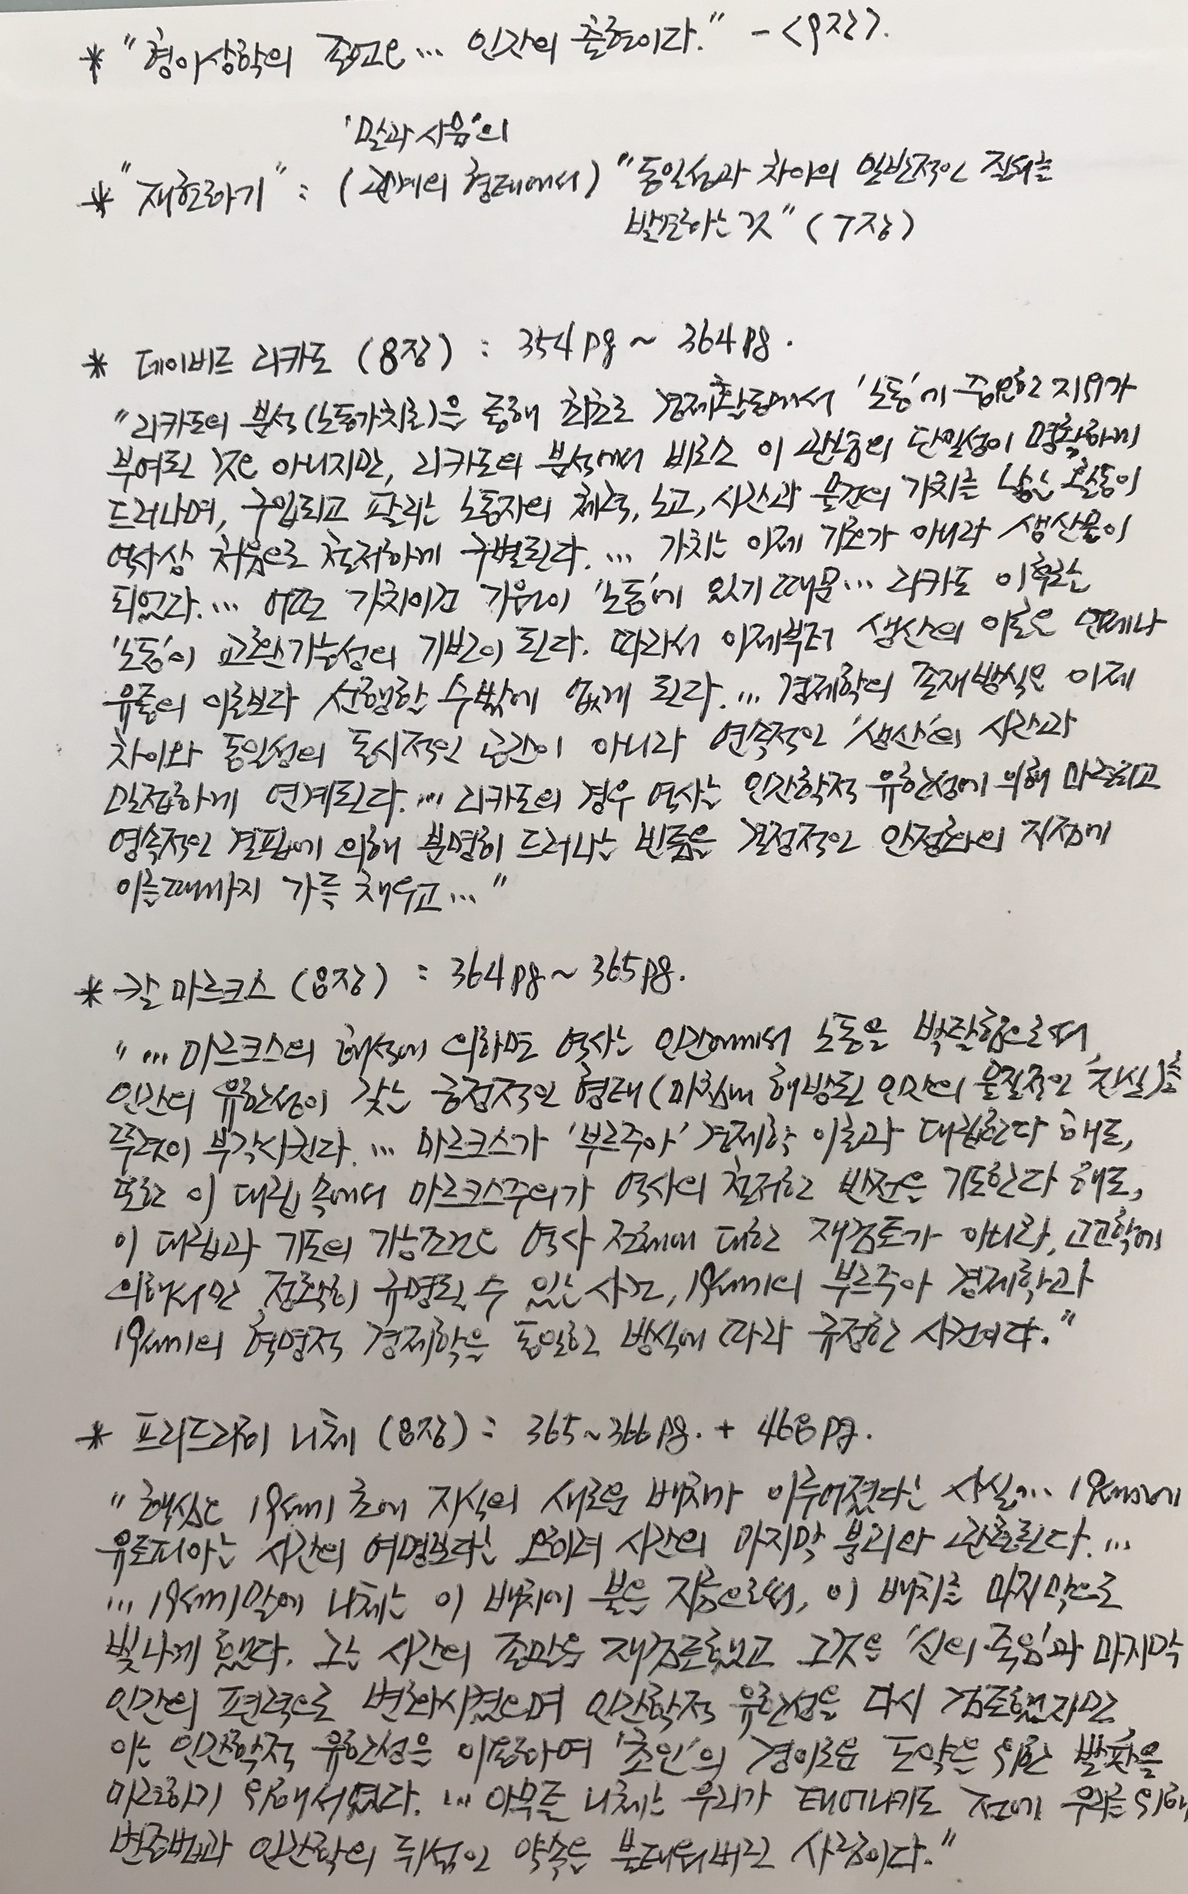 * "형이상학의 종언은… 인간의 출현이다." - <9장>.
'말과 사물'의
* "재현하기" : (관계의 형태에서) "동일성과 차이의 일반적인 질서를
발견하는 것" (7장)
* 데이비드 리카도 (8장) : 354pg ~ 364pg.
"리카도의 분석(노동가치론)을 통해 최초로 경제활동에서 '노동'에 중요한 지위가
부여된 것은 아니지만, 리카도의 분석에서 비로소 이 관념의 단일성이 명확하게
드러나며, 구입되고 팔리는 노동자의 체력, 노고, 시간과 물건의 가치를 낳는 활동이
역사상 처음으로 철저하게 구별된다. … 가치는 이제 기호가 아니라 생산물이
되었다. … 어떤 가치이건 기원이 '노동'에 있기 때문… 리카도 이후는
'노동'이 교환가능성의 기반이 된다. 따라서 이제부터 생산의 이론은 언제나
유통의 이론보다 선행할 수밖에 없게 된다. … 경제학의 존재방식은 이제
차이와 동일성의 동시적인 공간이 아니라 연속적인 '생산'의 시간과
밀접하게 연계된다. … 리카도의 경우 역사는 인간학적 유한성에 의해 마련되고
영속적인 결핍에 의해 분명히 드러나는 빈틈을 결정적인 안정화의 지점에
이를때까지 가득 채우고…"
* 칼 마르크스 (8장) : 364pg ~ 365pg.
"… 마르크스의 해석에 의하면 역사는 인간에게서 노동을 박탈함으로써
인간의 유한성이 갖는 긍정적인 형태(마침내 해방된 인간의 물질적인 '진실')를
뚜렷이 부각시킨다. … 마르크스가 '부르주아' 경제학 이론과 대립한다 해도,
또한 이 대립 속에서 마르크스주의가 역사의 철저한 반전을 기도한다 해도,
이 대립과 기도의 가능조건은 역사 전체에 대한 재검토가 아니라, 고고학에
의해서만 정확히 규명될 수 있는 사건, 19세기의 부르주아 경제학과
19세기의 혁명적 경제학을 동일한 방식에 따라 규정한 사건이다."
* 프리드리히 니체 (8장) : 365~366pg. + 468pg.
"핵심은 19세기 초에 지식의 새로운 배치가 이루어졌다는 사실… 19세기에
유토피아는 시간의 여명보다는 오히려 시간의 마지막 붕괴와 관련된다. …
… 19세기말에 니체는 이 배치에 불을 지름으로써, 이 배치를 마지막으로
빛나게 했다. 그는 시간의 종말을 재검토했고 그것을 '신의 죽음'과 마지막
인간의 편력으로 변화시켰으며 인간학적 유한성을 다시 검토했지만
이는 인간학적 유한성을 이용하여 '초인'의 경이로운 도약을 위한 발판을
마련하기 위해서였다. … 아무튼 니체는 우리가 태어나기도 전에 우리를 위해
변증법과 인간학의 뒤섞인 약속을 불태워버린 사람이다."